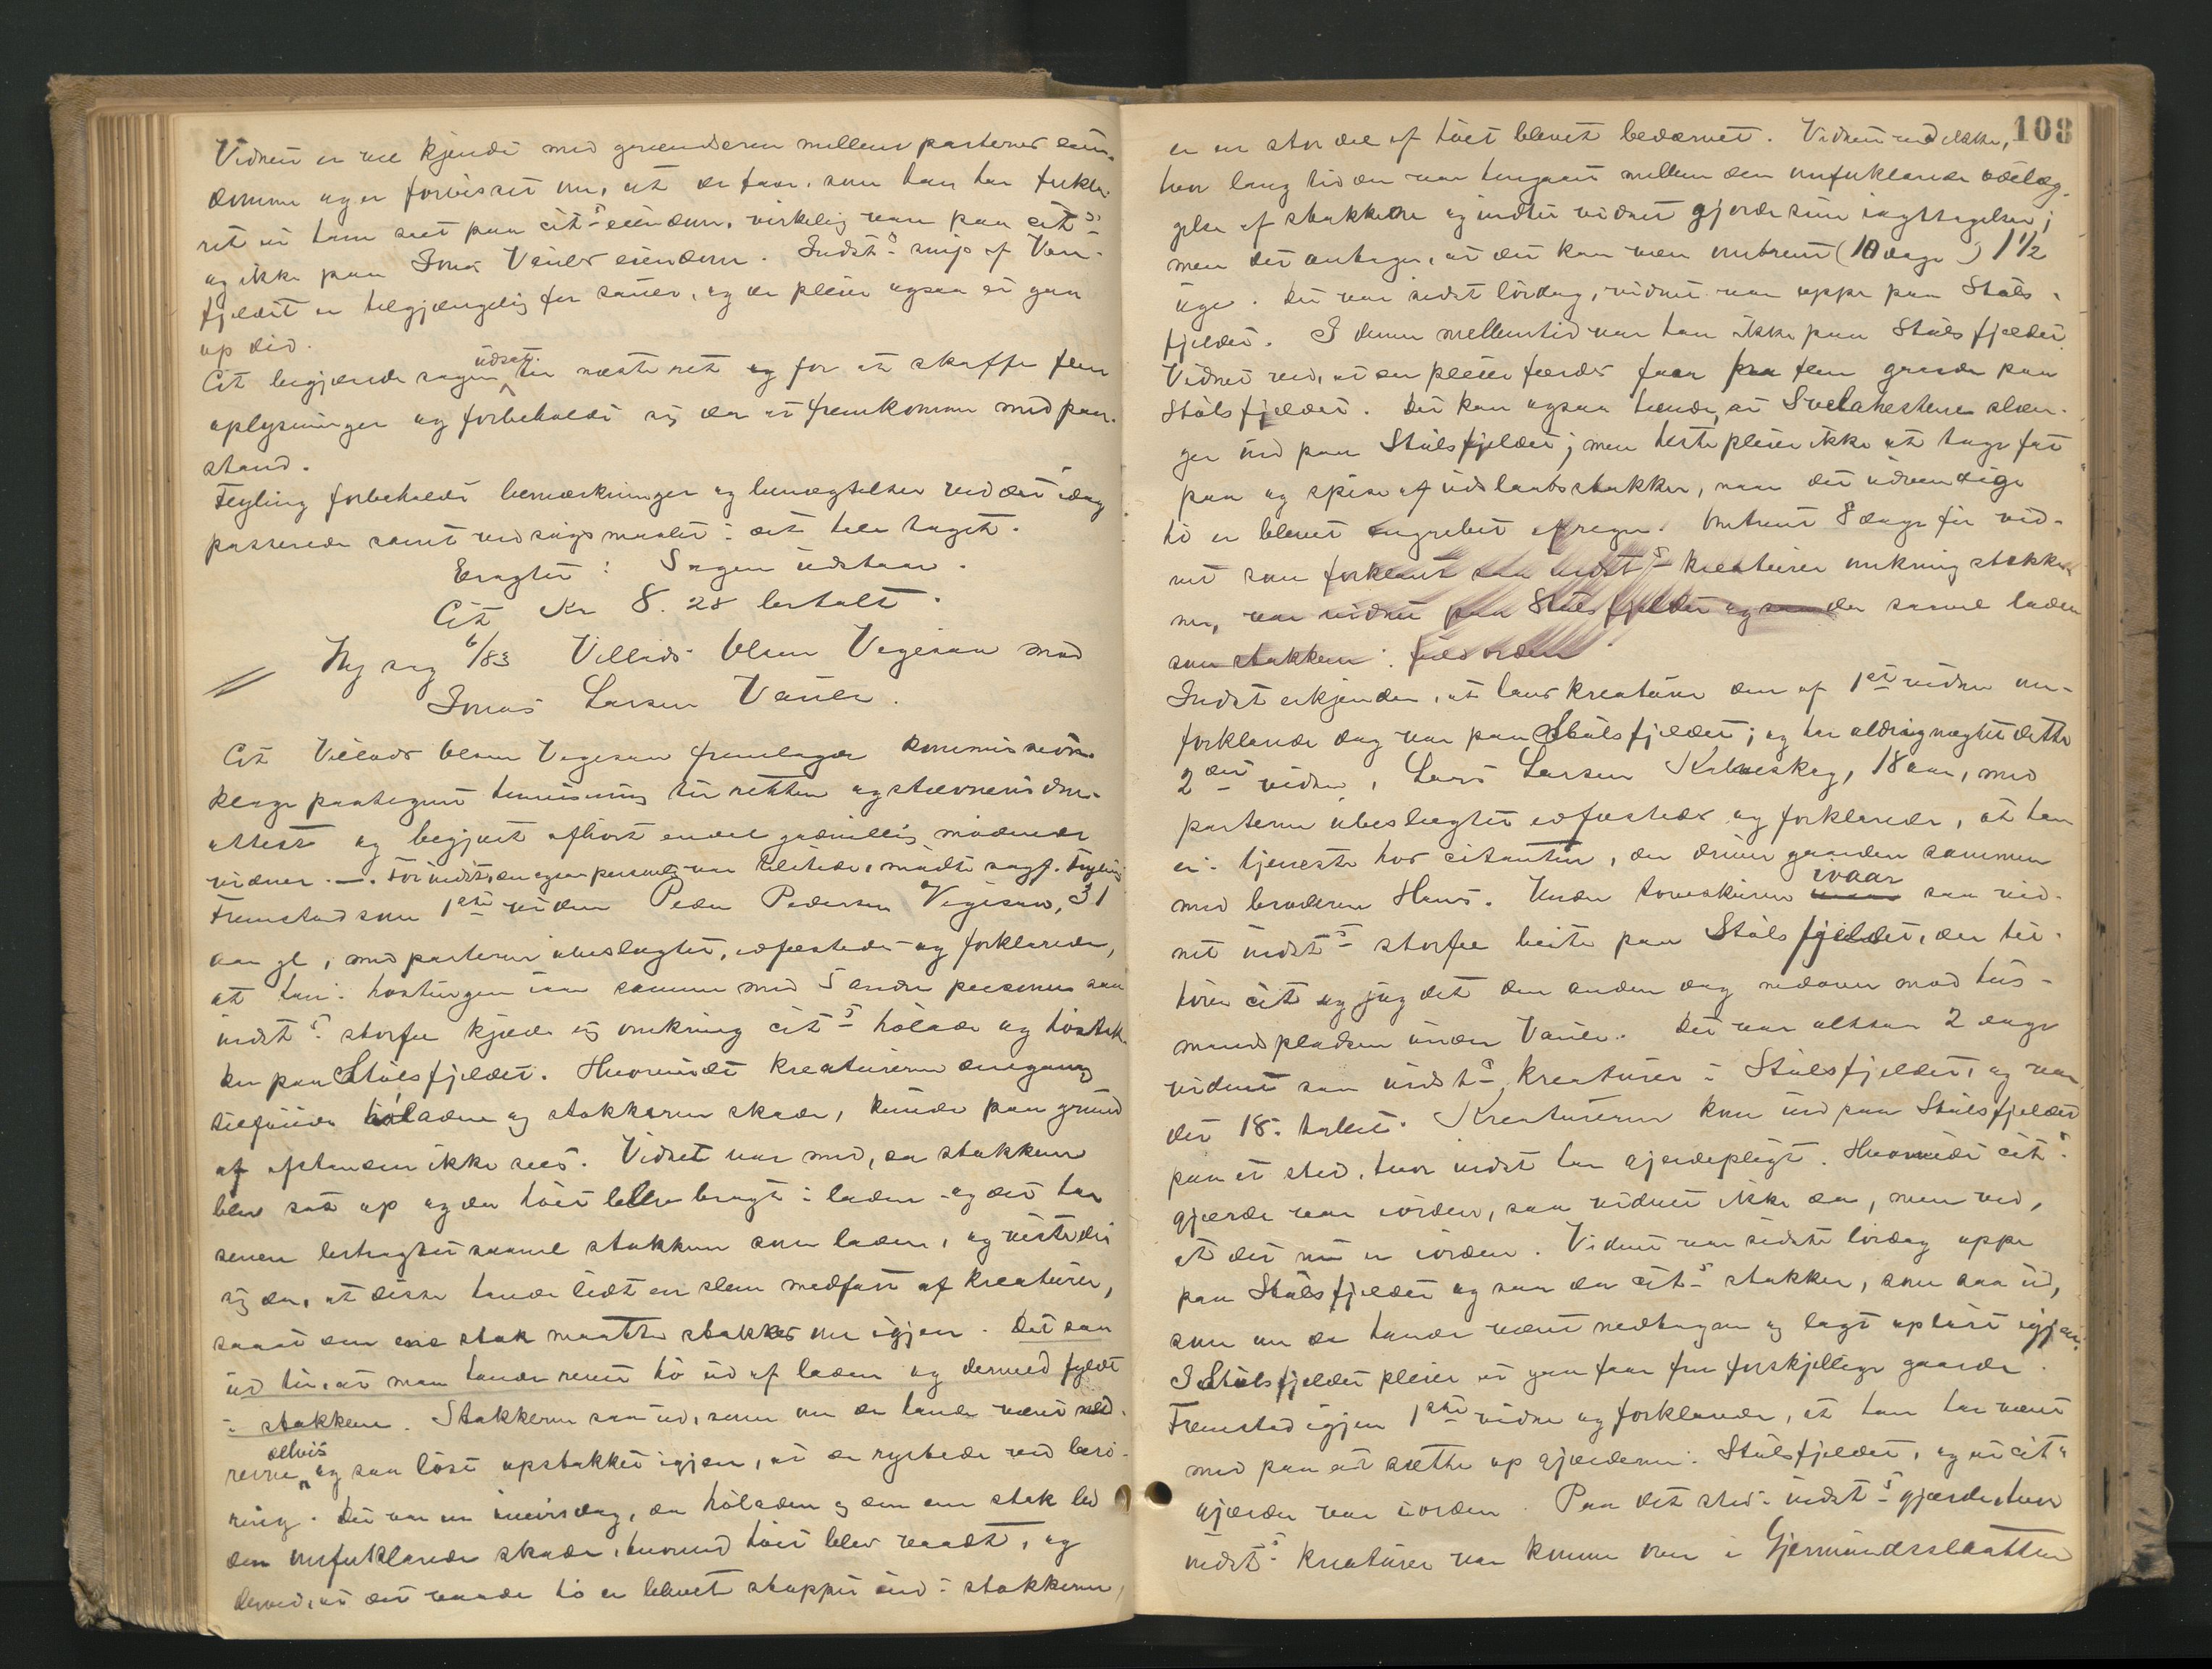 Vidnet er vel kjendt med grændserne mellem parternes eien-
domme og er forvisset om, at de faar, som han har forkla-
ret at have seet paa citˢ eiendom, virkelig var paa citˢ
og ikke paa Jonas Vaules eiendom. Indstˢ snip af Van-
fjeldet er tilgjængelig for sauer, og de pleier ogsaa at gaa
op did.
Cit begjærede sagen udsat til næste ret og for at skaffe flere
oplysninger og forbeholdt sig da at fremkomme med paa-
stand.
Feyling forbeholdt bemærkninger og benægtelser ved det idag
passerede samt ved søgsmaalet i det hele taget.
Eragtet: Sagen udstaar.
Cit Kr 8.28 betalt.
Ny sag 6/83 Villads Olsen Vegesan mod
Jonas Larsen Vaule.
Cit Villads Olsen Vegesan fremlagde kommissions-
klage paategnet henvisning til retten og stævnevidne-
attest og begjært afhørt endel godvillig mødende
vidner. —. For indst, der ogsaa personlig var tilstede, mødte sagf. Feyling
Fremstod som 1ste vidne Peder Pedersen Vegesan, 31
aar gl, med parterne ubeslægtet, edfæstedes og forklarede,
at han i høstingen iaar sammen med 5 andre personer saa
indstˢ storfee kjæle sig omkring citˢ hølade og høstak-
ker paa Stølsfjeldet. Hvorvidt kreaturerne dengang
tilføiede høladen og stakkerne skade, kunde paa grund
af afstanden ikke sees. Vidnet var med, da stakkene
blev sat op og da høiet blev bragt i laden og det har
senere betragtet saavel stakkene som laden, og viste det
sig da, at disse havde lidt en slem medfart af kreaturer,
saaat den ene stak maatte stakkes om igjen. Det saa
ud til, at man havde revet hø ud af laden og dermed fyldt
i stakkene. Stakkerne saa ud, som om de havde været ned-
revne delvis og saa løst opstakket igjen, at de rystede ved berø-
ring. Det var en uveirsdag, da høladen og den ene stak led
den omforklarede skade, hvorved høiet blev vaadt, og
derved, at det vaade hø er blevet stoppet ind i stakkerne,
108
er en stor del af høiet blevet bedærvet. Vidnet ved ikke,
hvor lang tid der var hengaaet mellem den omforklarede ødelæg-
gelse af stakkerne og indtil vidnet gjorde sine iagttagelser;
men det antager, at det kan være omtrent (10 dage) 1½
uge. Det var sidst lørdag, vidnet var oppe paa Støls-
fjeldet. I denne mellemtid var han ikke paa Stølsfjeldet.
Vidnet ved, at der pleier færdes faar fra flere gaarde paa
Stølsfjeldet. Det kan ogsaa hænde, at Svelahestene slæn-
ger ind paa Stølsfjeldet; men heste pleier ikke at tage fat
paa og spise af udslaatsstakker, naar det udvendige
hø er blevet angrebet af regn. Omtrent 8 dage før vid-
net som forklaret saa indstˢ kreaturer omkring stakker-
ne, var vidnet paa Stølsfjeldet og saa da saavel laden
som stakkene i fuld orden.
Indst erkjender, at hans kreaturer den af 1ste vidne om-
forklarede dag var paa Stølsfjeldet; og har aldrig nægtet dette
2det vidne, Lars Larsen Kalveskog, 18 aar, med
parterne ubeslægtet edfæstedes og forklarede, at han
er i tjeneste hos citanten, der driver gaarden sammen
med broderen Hans. Under toveskuren ivaar saa vid-
net indstˢ storfee beite paa Stølsfjeldet, der til-
hører cit og jog det den anden dag nedover mod hus-
mandspladsen under Vaule. Det var altsaa 2 dage
vidnet saa indstˢ kreaturer i Stølsfjeldet, og var
det 18 i tallet. Kreaturerne kom ind paa Stølsfjeldet
paa et sted, hvor indst har gjerdepligt. Hvorvidt citˢ
gjærde var iorden, saa vidnet ikke da, men ved,
at det nu er iorden. Vidnet var sidste lørdag oppe
paa Stølsfjeldet og saa da citˢ stakker, som saa ud,
som om de havde været nedtagne og lagt op løst igjen.
I Stølsfjeldet pleier at gaa faar fra forskjellige gaarde.
Fremstod igjen 1ste vidne og forklarede, at han har været
med paa at sætte op gjærderne i Stølsfjeldet, og at citˢ
gjærder var iorden. Paa det sted i indstˢ gjærde, hvor
indstˢ kreaturer var komne over i Gjermundsslaatten